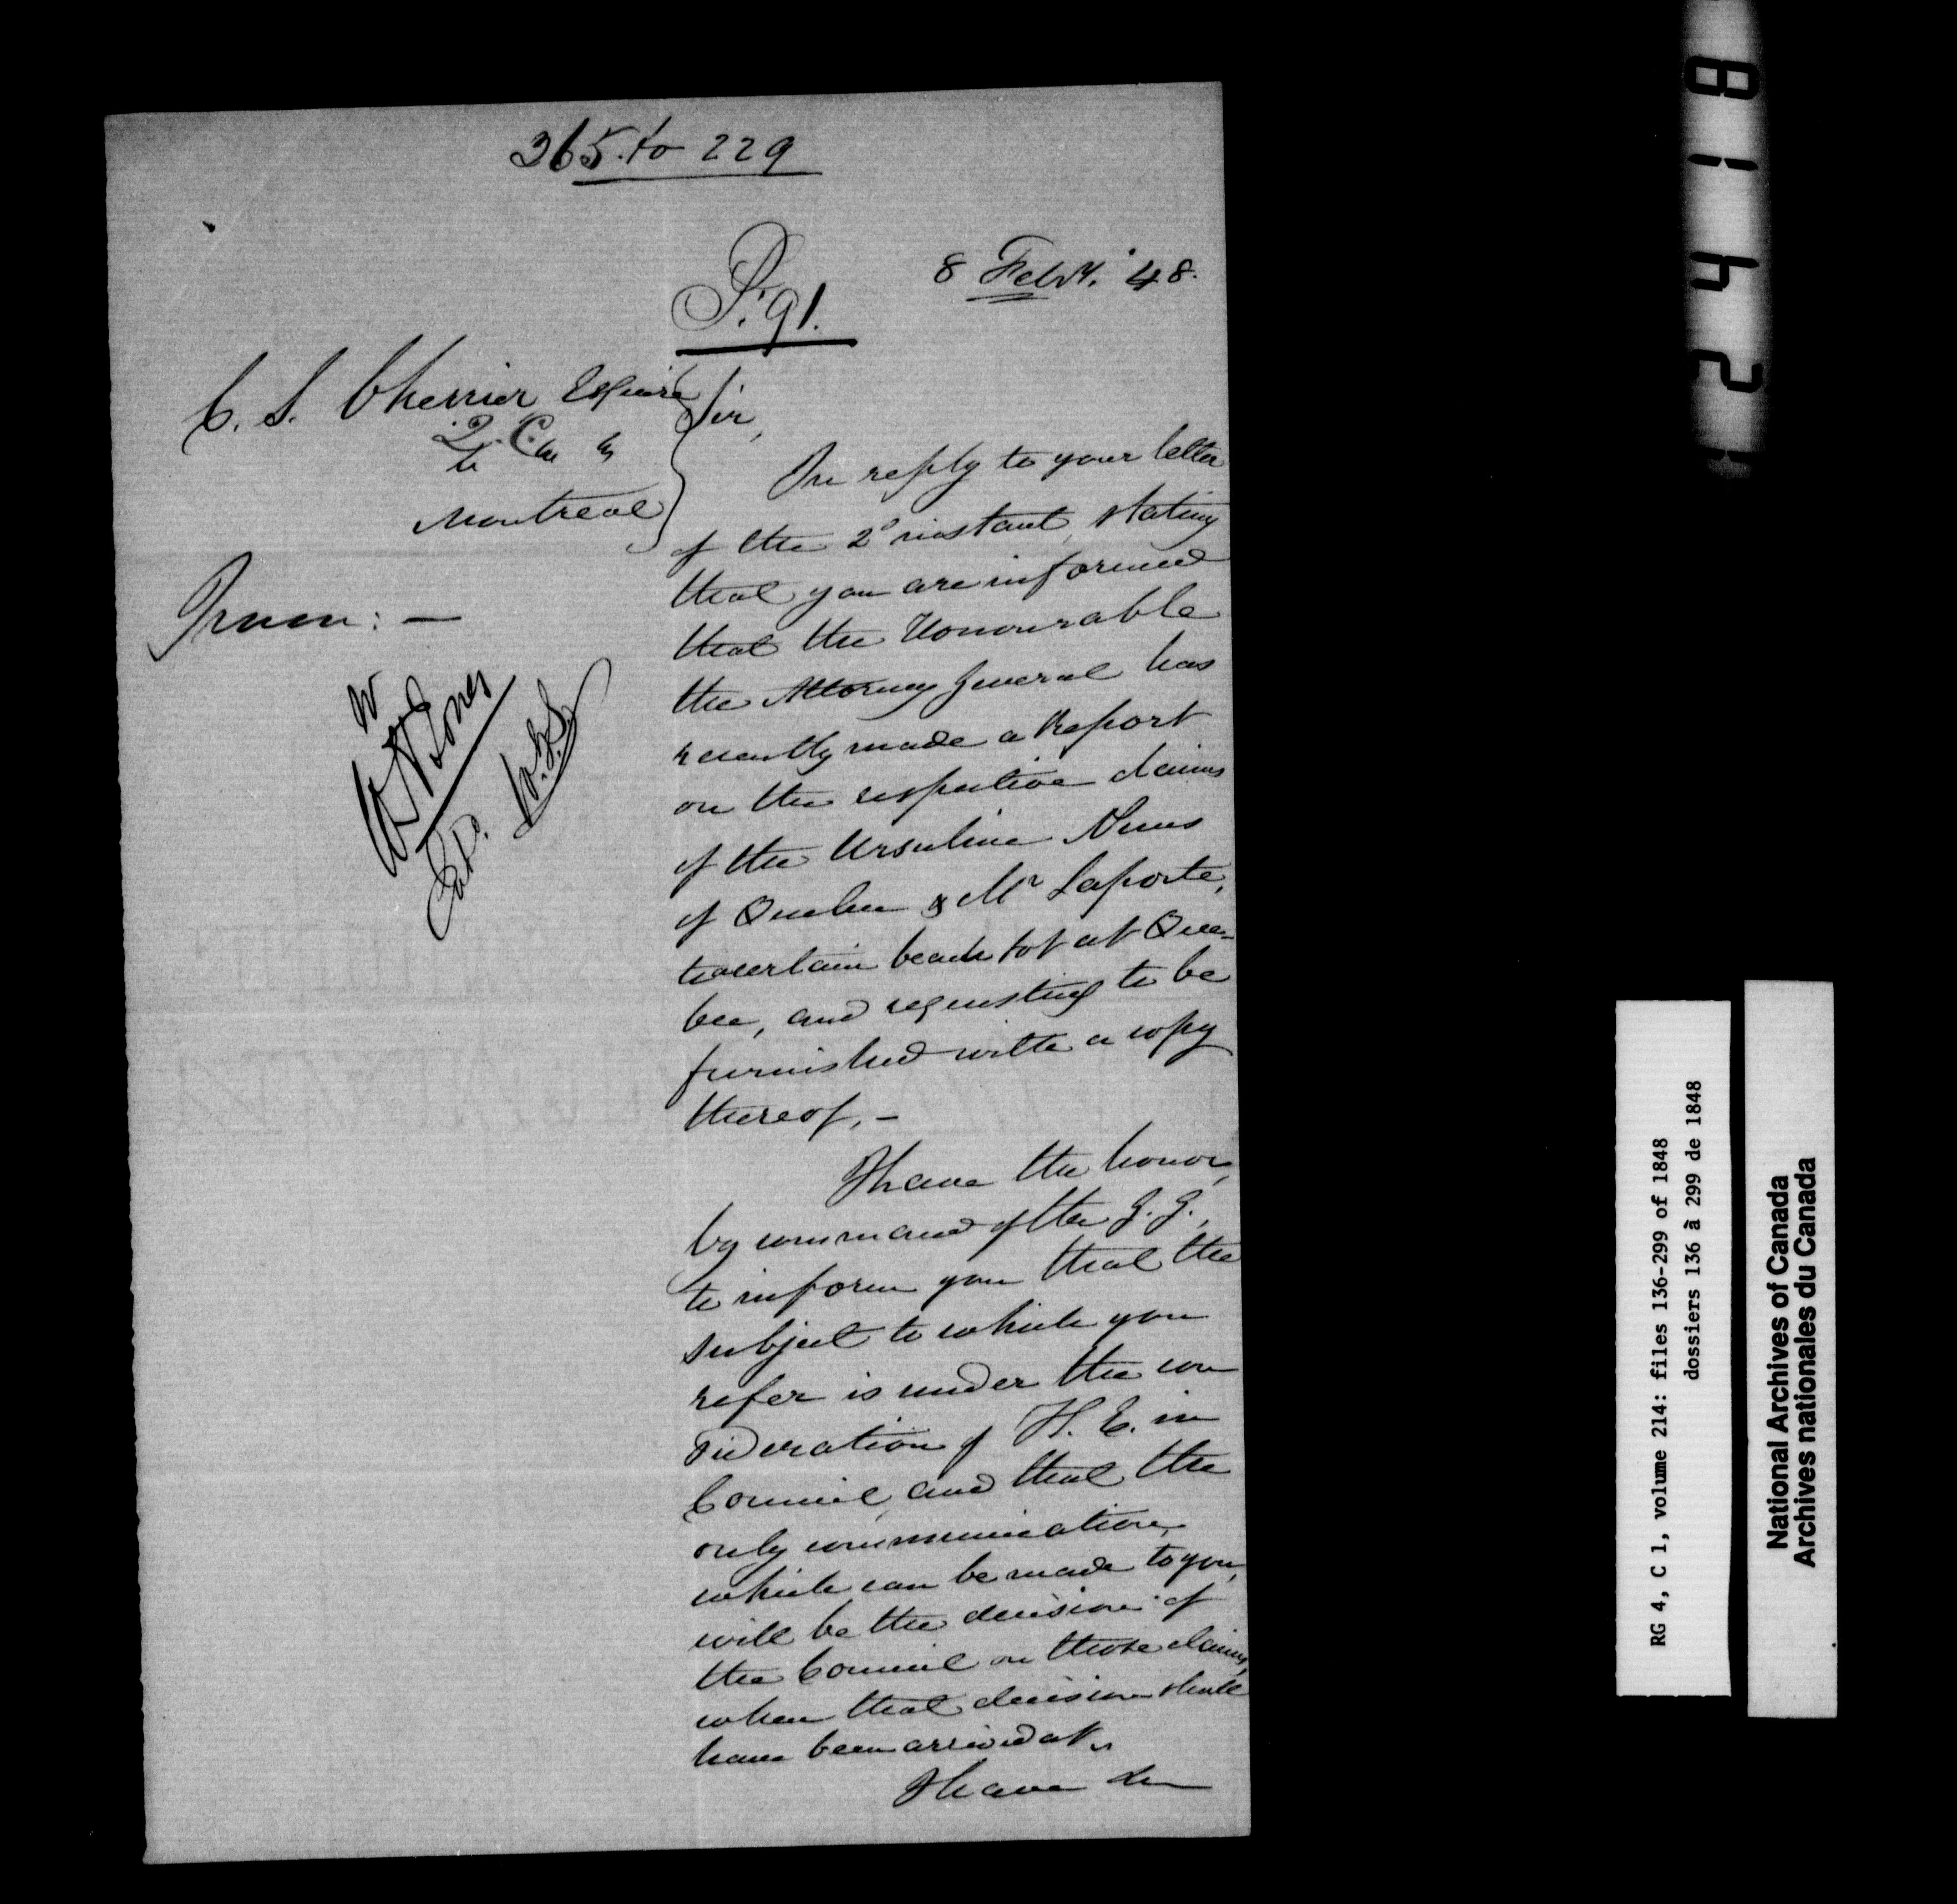 365. to 229
P. 91.
8 Feby. '48.
C. S. Cherrier Esquire
Q. C. &c &c
Montreal
Sir,
In reply to your letter
of the 2d instant, stating
that you are informed
that the Honourable
the Attorney General has
recently made a Report
on the respective claims
of the Ursuline Nuns
of Quebec & Mr Laporte,
to a certain beach lot at Que-
bec, and requesting to be
furnished with a copy
thereof. –
I have the honor,
by command of the G. G.,
to inform you that the
subject to which you
refer is under the con
sideration of H. E. in
Council, and that the
only communication,
which can be made to you,
will be the decision of
the Council on those claims,
when that decision shall
have been arrived at.
I have &c
RG 4, C 1, volume 214: files 136-299 of 1848
dossiers 136 à 299 de 1848
National Archives of Canada
Archives nationales du Canada
81421